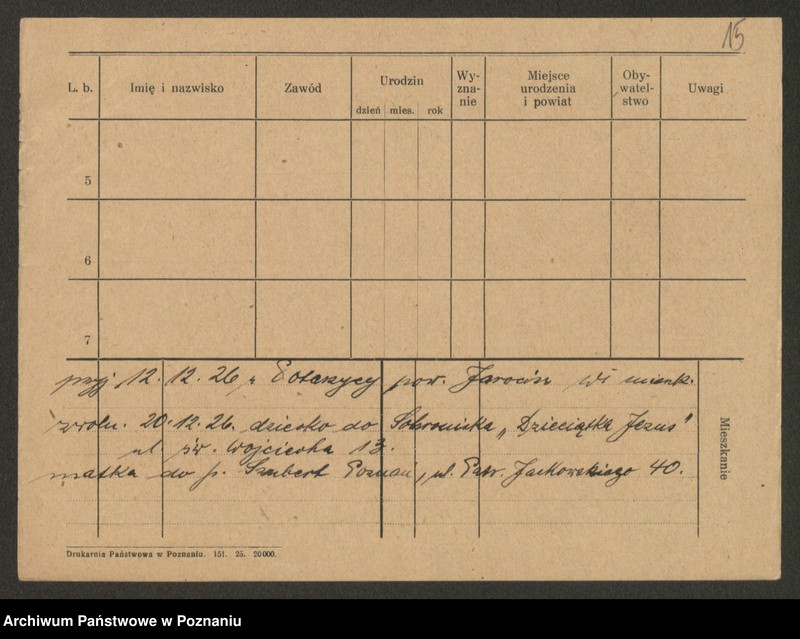 15
L. b. Imię i nazwisko Zawód Urodzin dzień mies. rok Wy-zna-nie Miejsce urodzenia i powiat Oby-watel-stwo Uwagi
5
6
7
przyj 12. 12. 26 z pow. Jarocin
zwoln. 20.12.26. dziecko do "Dzieciątka Jezus"
ul św. Wojciecha 13.
matka do p. Szubert Poznań, ul. Patr. Jackowskiego 40.
Mieszkanie
Drukarnia Państwowa w Poznaniu. 151. 25. 20000.
Archiwum Państwowe w Poznaniu